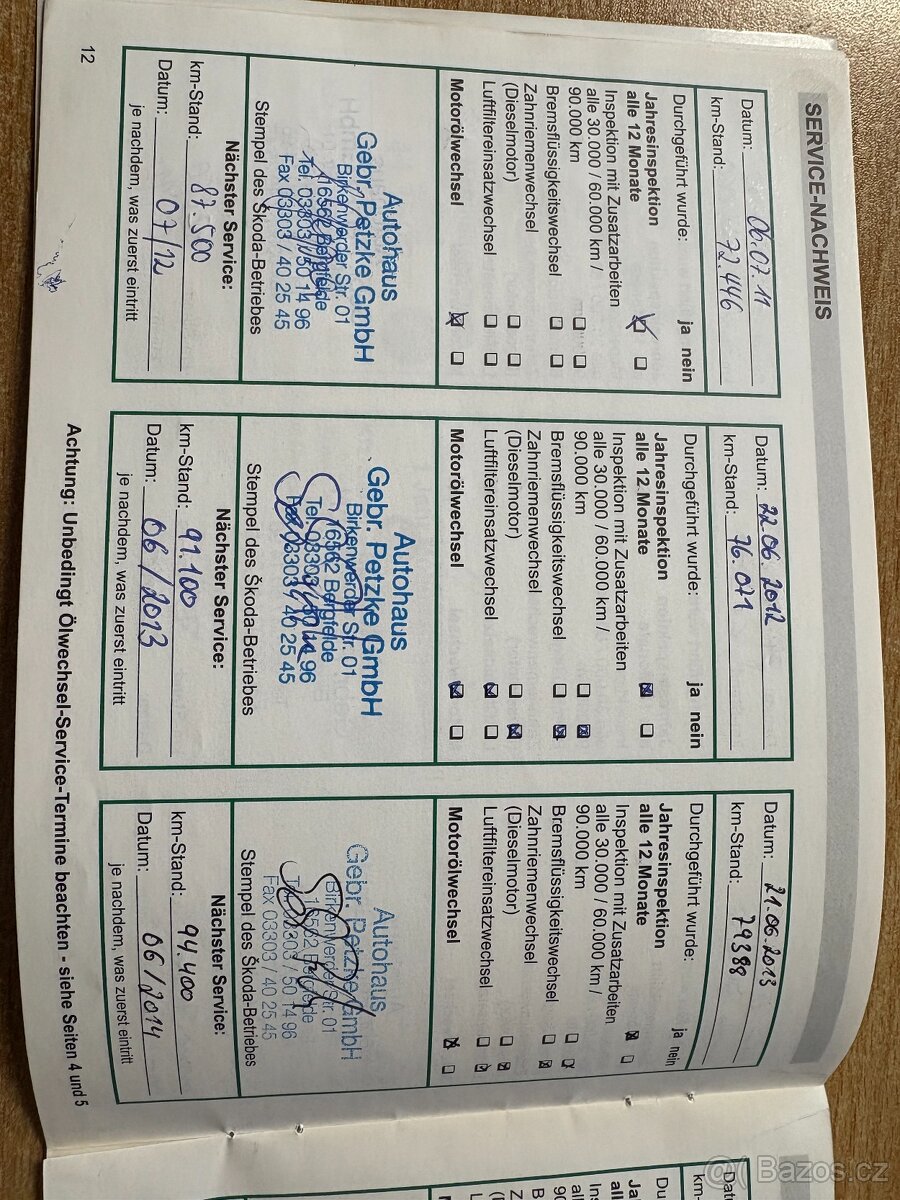 SERVICE-NACHWEIS
Datum: 06.07.11
km-Stand: 72.446
Durchgeführt wurde: ja nein
Jahresinspektion
alle 12 Monate
Inspektion mit Zusatzarbeiten
alle 30.000 / 60.000 km /
90.000 km
Bremsflüssigkeitswechsel
Zahnriemenwechsel
(Dieselmotor)
Luftfiltereinsatzwechsel
Motorölwechsel
Autohaus
Gebr. Petzke GmbH
Birkenwerder Str. 01
16562 Bergfelde
Tel. 03303 / 50 14 96
Fax 03303 / 40 25 45
Stempel des Škoda-Betriebes
Nächster Service:
km-Stand: 87.500
Datum: 07/12
je nachdem, was zuerst eintritt
Datum: 22.06.2012
km-Stand: 76.071
Durchgeführt wurde: ja nein
Jahresinspektion
alle 12 Monate
Inspektion mit Zusatzarbeiten
alle 30.000 / 60.000 km /
90.000 km
Bremsflüssigkeitswechsel
Zahnriemenwechsel
(Dieselmotor)
Luftfiltereinsatzwechsel
Motorölwechsel
Autohaus
Gebr. Petzke GmbH
Birkenwerder Str. 01
16562 Bergfelde
Tel. 03303 / 50 14 96
Fax 03303 / 40 25 45
Stempel des Škoda-Betriebes
Nächster Service:
km-Stand: 91.100
Datum: 06/2013
je nachdem, was zuerst eintritt
Datum: 21.06.2013
km-Stand: 79388
Durchgeführt wurde: ja nein
Jahresinspektion
alle 12 Monate
Inspektion mit Zusatzarbeiten
alle 30.000 / 60.000 km /
90.000 km
Bremsflüssigkeitswechsel
Zahnriemenwechsel
(Dieselmotor)
Luftfiltereinsatzwechsel
Motorölwechsel
Autohaus
Gebr. Petzke GmbH
Birkenwerder Str. 01
16562 Bergfelde
Tel. 03303 / 50 14 96
Fax 03303 / 40 25 45
Stempel des Škoda-Betriebes
Nächster Service:
km-Stand: 94.400
Datum: 06/2014
je nachdem, was zuerst eintritt
Achtung: Unbedingt Ölwechsel-Service-Termine beachten - siehe Seiten 4 und 5
12
Datu
km-
Du
Ja
al
Ins
all
90
B
Z
(
L
M
Bazos.cz